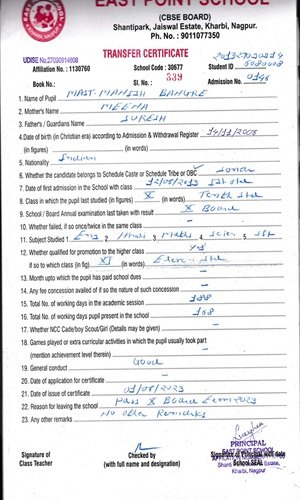 EAST POINT SCHOOL
(CBSE BOARD)
Shantipark, Jaiswal Estate, Kharbi, Nagpur.
Ph. No. : 9011077350
UDISE No. 27090914608
TRANSFER CERTIFICATE
Affiliation No. : 1130760 School Code : 30677 Student ID
Book No.: Sl. No.: 339 Admission No. 0146
1. Name of Pupil MAST. MANISH BANGRE
2. Mother's Name MEENA
3. Father's / Guardians Name SURESH
4. Date of birth (in Christian era) according to Admission & Withdrawal Register 14/11/2008
(in figures) (in words)
5. Nationality Indian
6. Whether the candidate belongs to Schedule Caste or Schedule Tribe or OBC
7. Date of first admission in the School with class 12/06/2013 Ist std
8. Class in which the pupil last studied (in figures) X (in words) Tenth Std
9. School / Board Annual examination last taken with result X Board
10. Whether failed, if so once/twice in the same class –
11. Subject Studied 1. Eng 2. Hindi 3. Maths 4. Scien 5. SST
12. Whether qualified for promotion to the higher class Yes
if so to which class (in fig) XI (in words) Eleven Std
13. Month upto which the pupil has paid school dues –
14. Any fee concession availed of if so the nature of such concession –
15. Total No. of working days in the academic session 188
16. Total No. of working days pupil present in the school 168
17. Whether NCC Cade/boy Scout/Girl (Details may be given) –
18. Games played or extra curricular activities in which the pupil usually took part
(mention achievement level therein) –
19. General conduct Good
20. Date of application for certificate –
21. Date of issue of certificate 01/06/2023
22. Reason for leaving the school Pass X Board Exam 2023
23. Any other remarks No other Remarks
PRINCIPAL
EAST POINT SCHOOL
Kharbi, Nagpur.
Signature of
Class Teacher
Checked by
(with full name and designation)
Signature of Principal with date
School SEAL